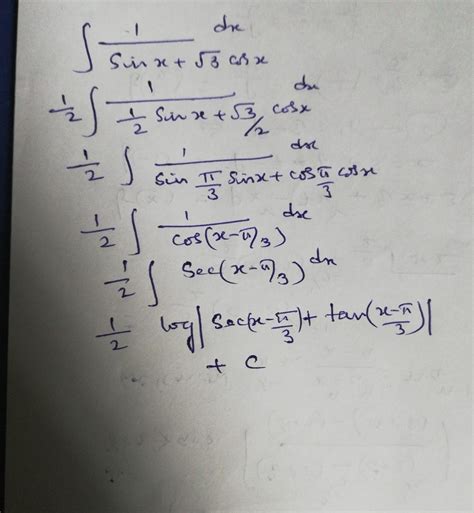 ∫ 1/(Sin x + √3 cos x) dx
1/2 ∫ 1/(1/2 Sin x + √3/2 cos x) dx
1/2 ∫ 1/(Sin π/3 Sin x + cos π/3 cos x) dx
1/2 ∫ 1/(cos(x-π/3)) dx
1/2 ∫ Sec(x-π/3) dx
1/2 log|Sec(x-π/3)+ tan(x-π/3)|
+ C